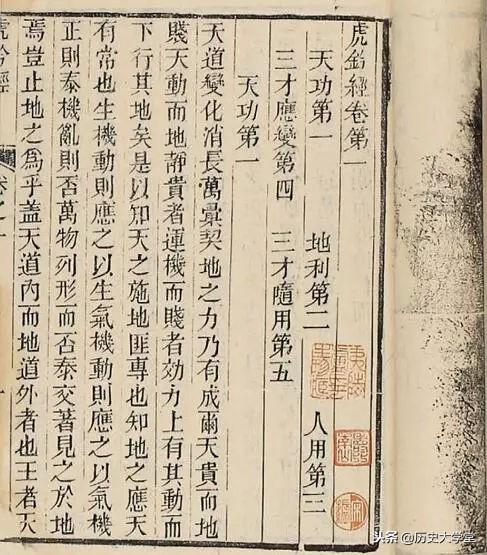 虎鈐經卷第一
天功第一 地利第二 人用第三
三才應變第四 三才隨用第五
天功第一
天道變化消長萬彙契地之力乃有成爾天貴而地
賤天動而地靜貴者運機而賤者効力上有其動而
下行其地矣是以知天之施地匪專也知地之應天
有常也生機動則應之以生氣機動則應之以氣機
正則泰機亂則否萬物列形而否泰交著見之於地
焉豈止地之爲乎蓋天道内而地道外者也王者天
虎鈐經 卷之一
头条 @历史大学堂